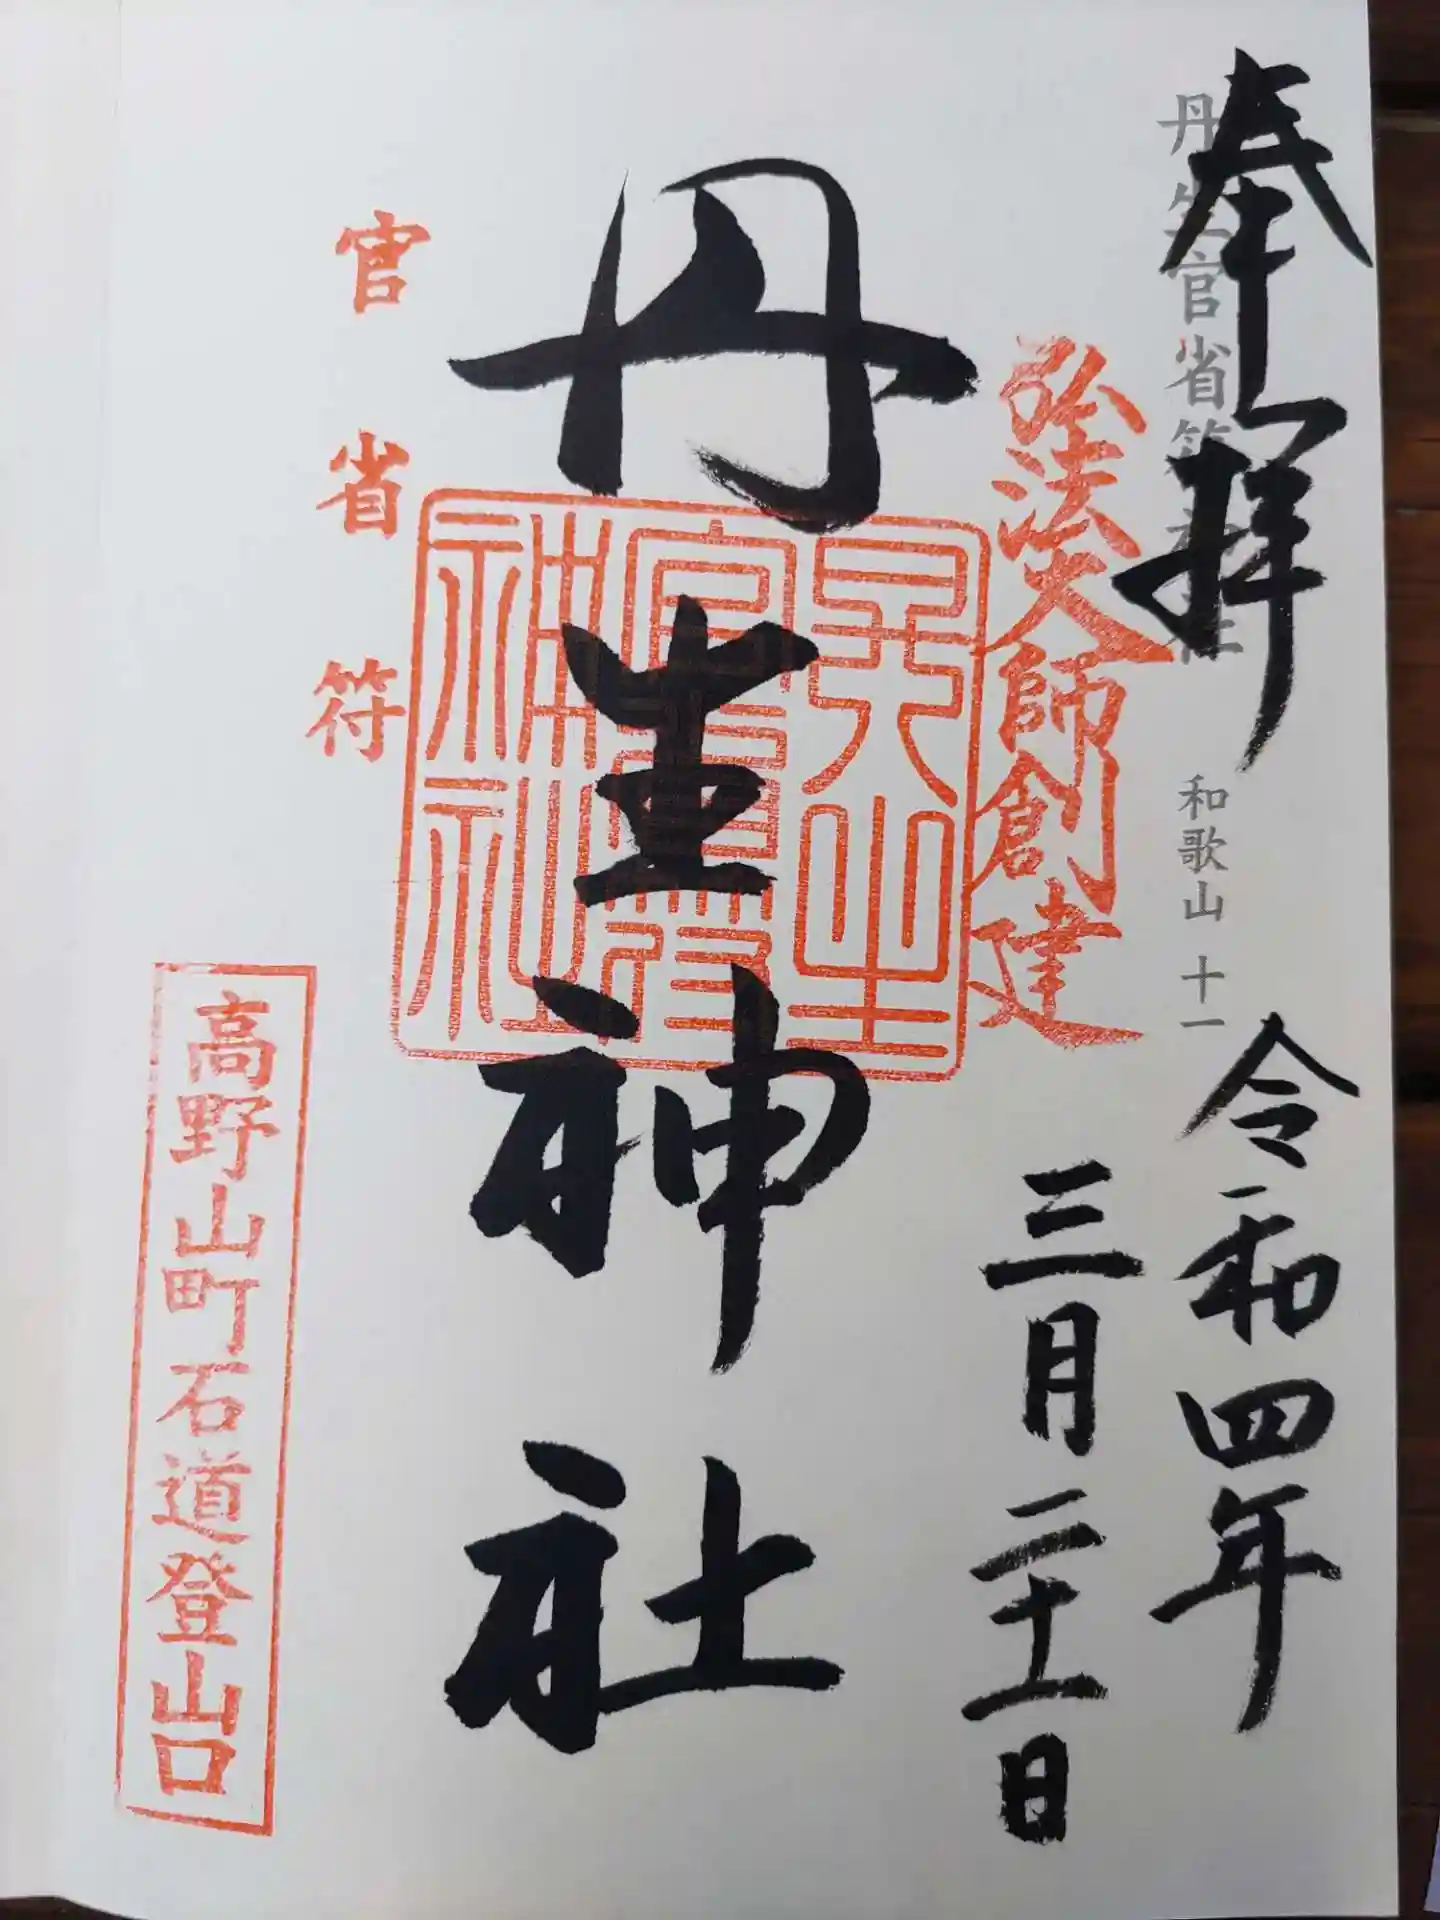 奉拝
丹生官省符神社 和歌山 十一
令和四年
三月二十一日
弘法大師創建
丹生神社
官省符
神社
官省符
高野山町石道登山口